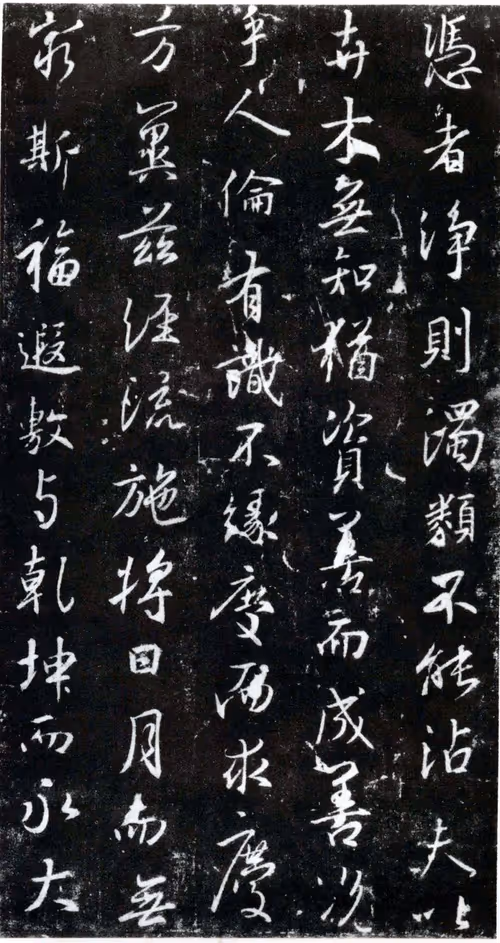 憑者淨則濁類不能沾夫以
卉木無知猶資善而成善況
乎人倫有識不緣慶而求慶
方冀茲經流施將日月而無
窮斯福遐敷与乾坤而永大